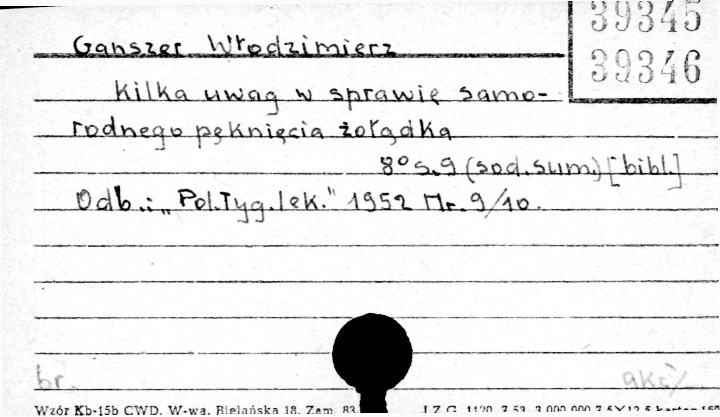 39345
39346
Ganszer Włodzimierz
Kilka uwag w sprawie samo-
rodnego pęknięcia żołądka
8° s. 9 (sod. sum.) [bibl.]
Odb.: „Pol. Tyg. lek." 1952 Nr. 9/10.
br.
Wzór Kb-15b CWD, W-wa, Bielańska 18. Zam. 83 J.Z.G. 1120 7.53 3.000.000 7,5×12,5 karton